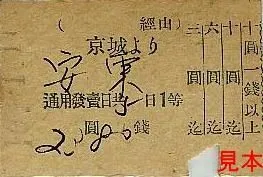 ( 經由)
京城より
安東
通用發賣日共 日1等
圓 錢
十圓一錢以上
十圓迄
六圓迄
三圓迄
見本